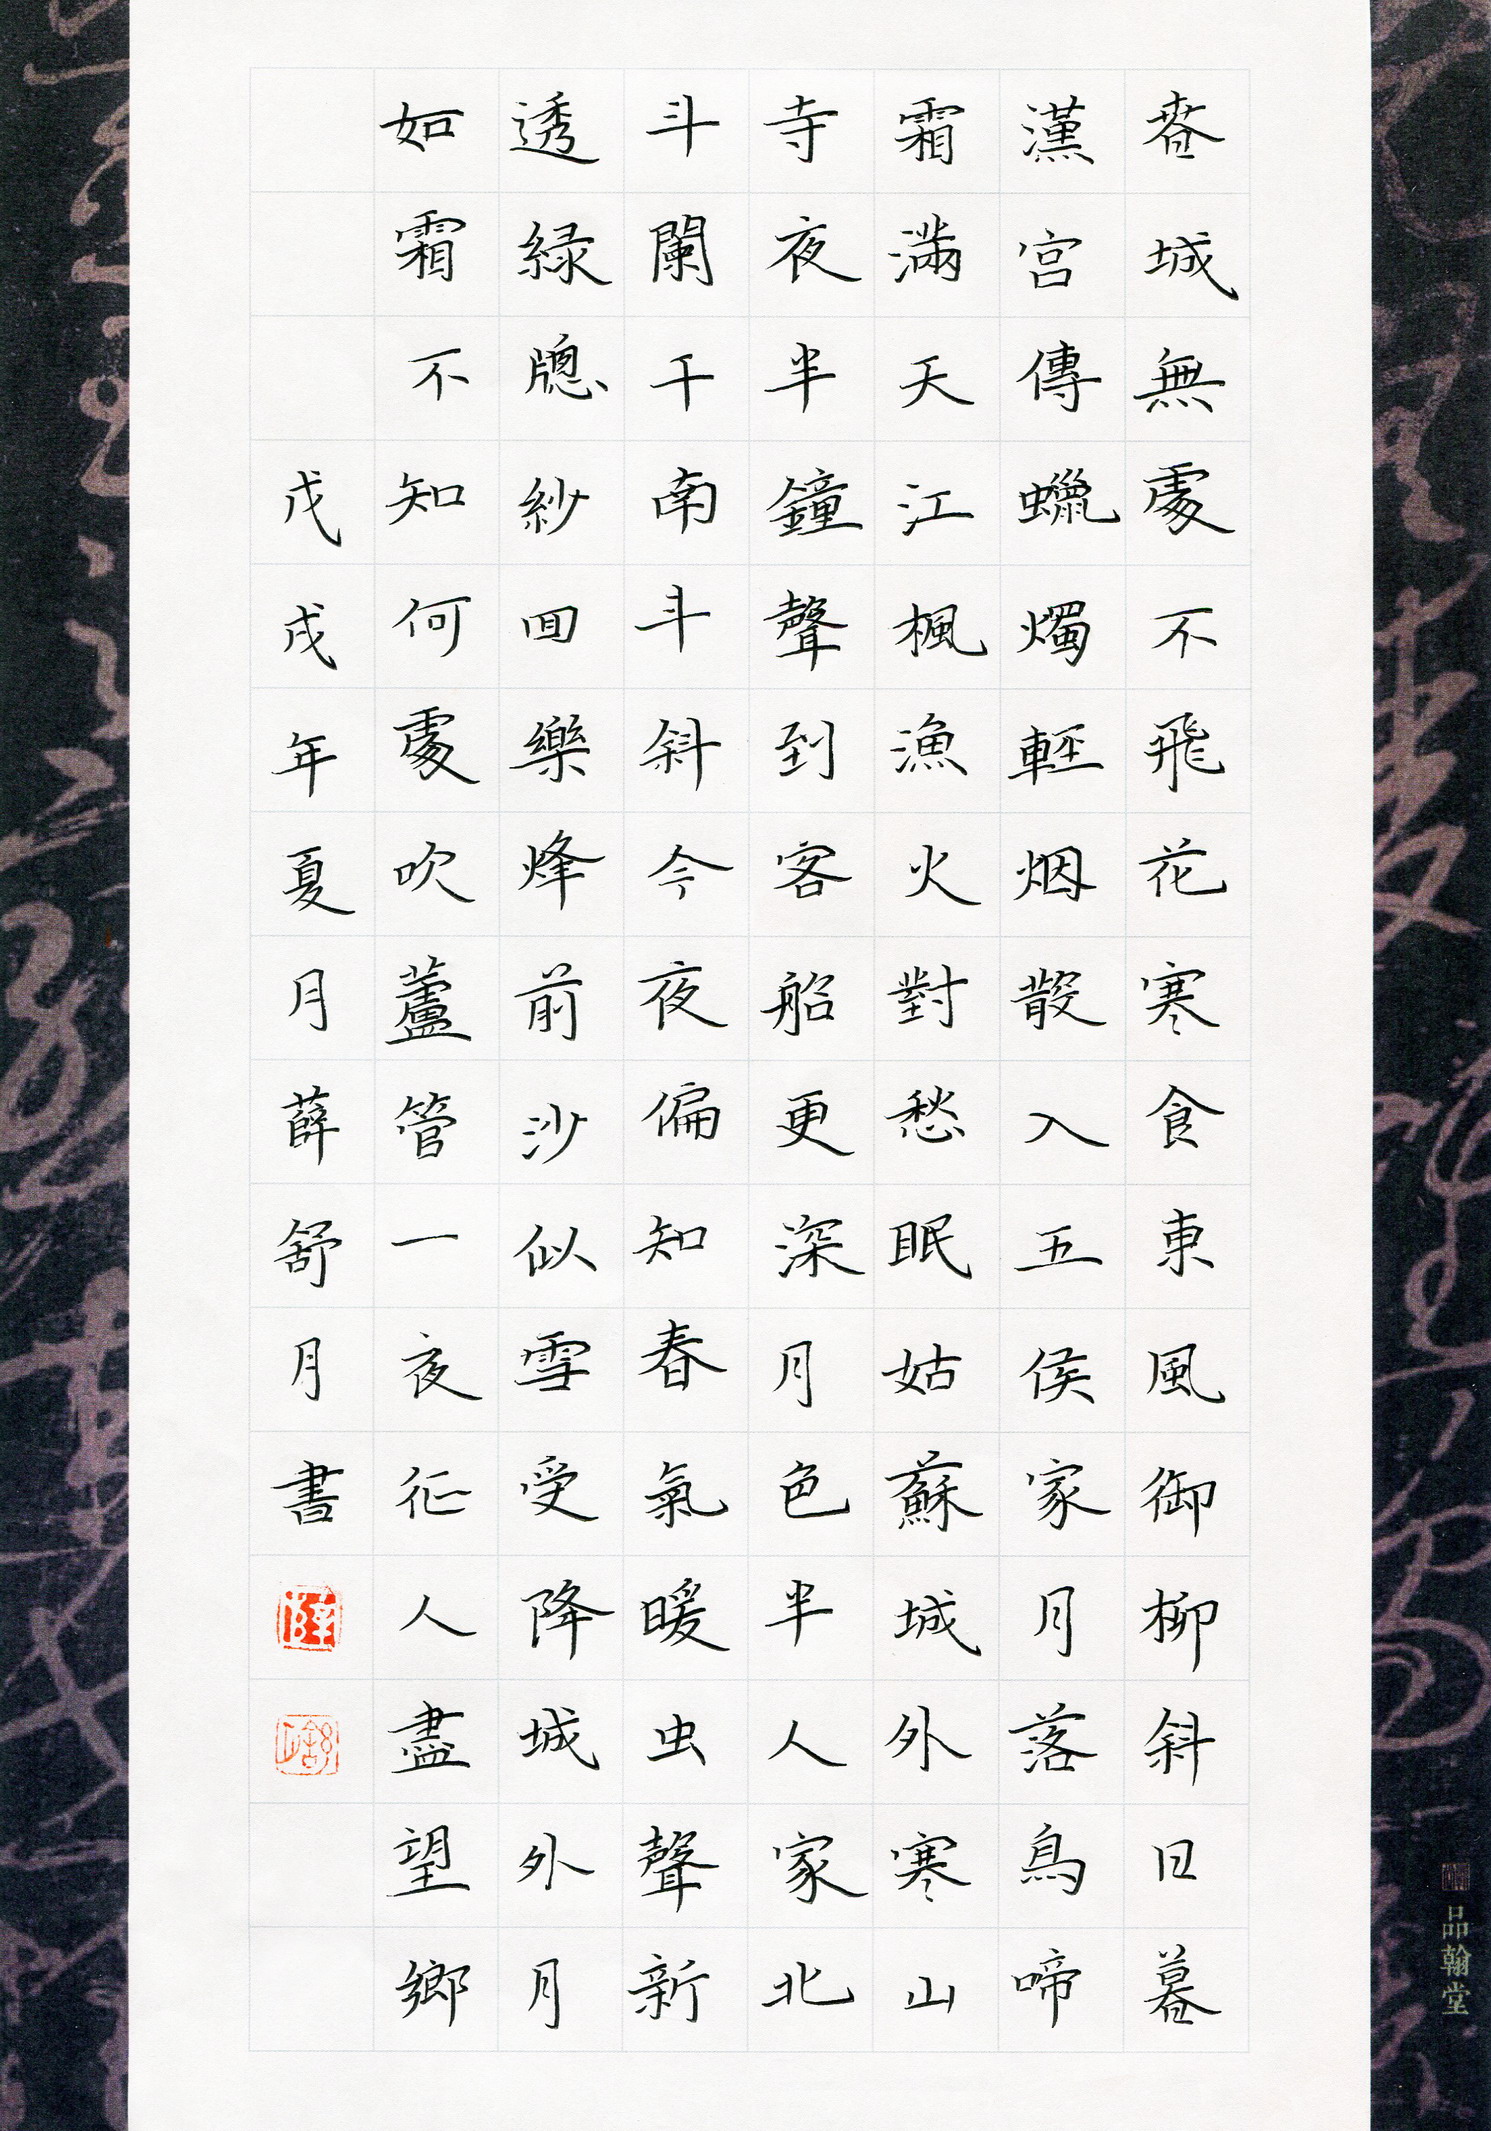 春城無處不飛花寒食東風御柳斜日暮
漢宮傳蠟燭輕烟散入五侯家月落鳥啼
霜滿天江楓漁火對愁眠姑蘇城外寒山
寺夜半鐘聲到客船更深月色半人家北
斗闌干南斗斜今夜偏知春氣暖虫聲新
透緑牎紗回樂烽前沙似雪受降城外月
如霜不知何處吹蘆管一夜征人盡望鄉
戊戌年夏月薛舒月書
薛
品翰堂